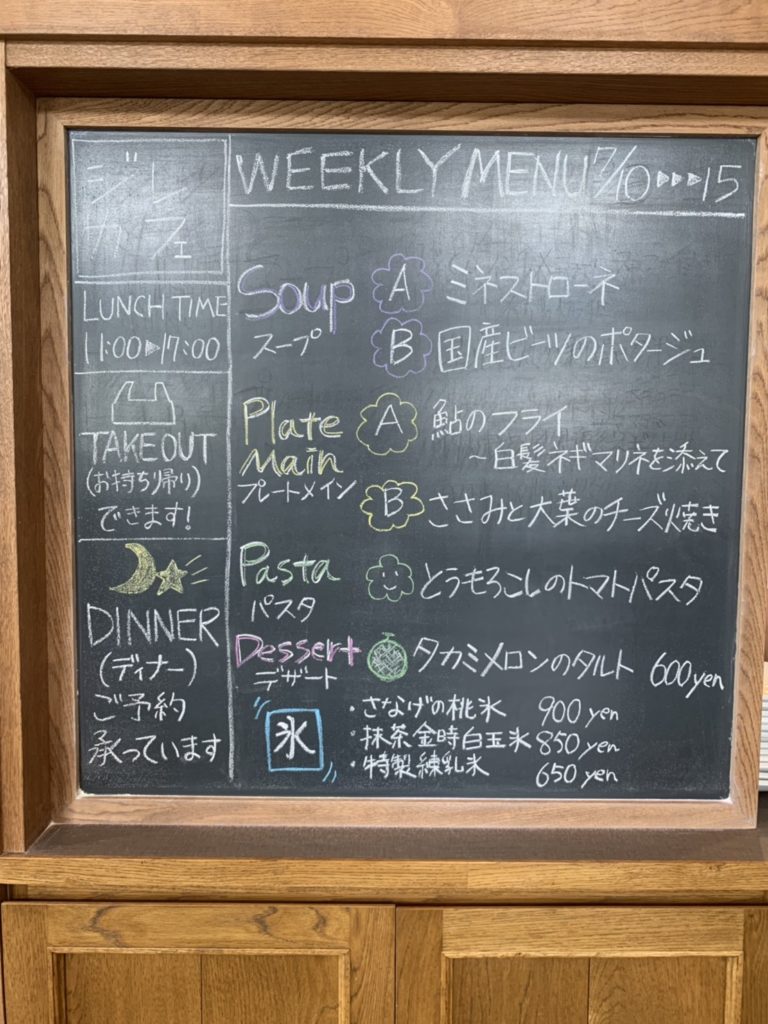 ジレ
カフェ
LUNCH TIME
11:00▷17:00
TAKEOUT
(お持ち帰り)
できます!
DINNER
(ディナー)
ご予約
承っています
WEEKLY MENU 7/10▷▷▷15
Soup
スープ
A ミネストローネ
B 国産ビーツのポタージュ
Plate
Main
プレートメイン
A 鮎のフライ
~白髪ネギマリネを添えて
B ささみと大葉のチーズ焼き
Pasta
パスタ
とうもろこしのトマトパスタ
Dessert
デザート
タカミメロンのタルト 600yen
氷
・さなげの桃氷 900yen
・抹茶金時白玉氷 850yen
・特製練乳氷 650yen